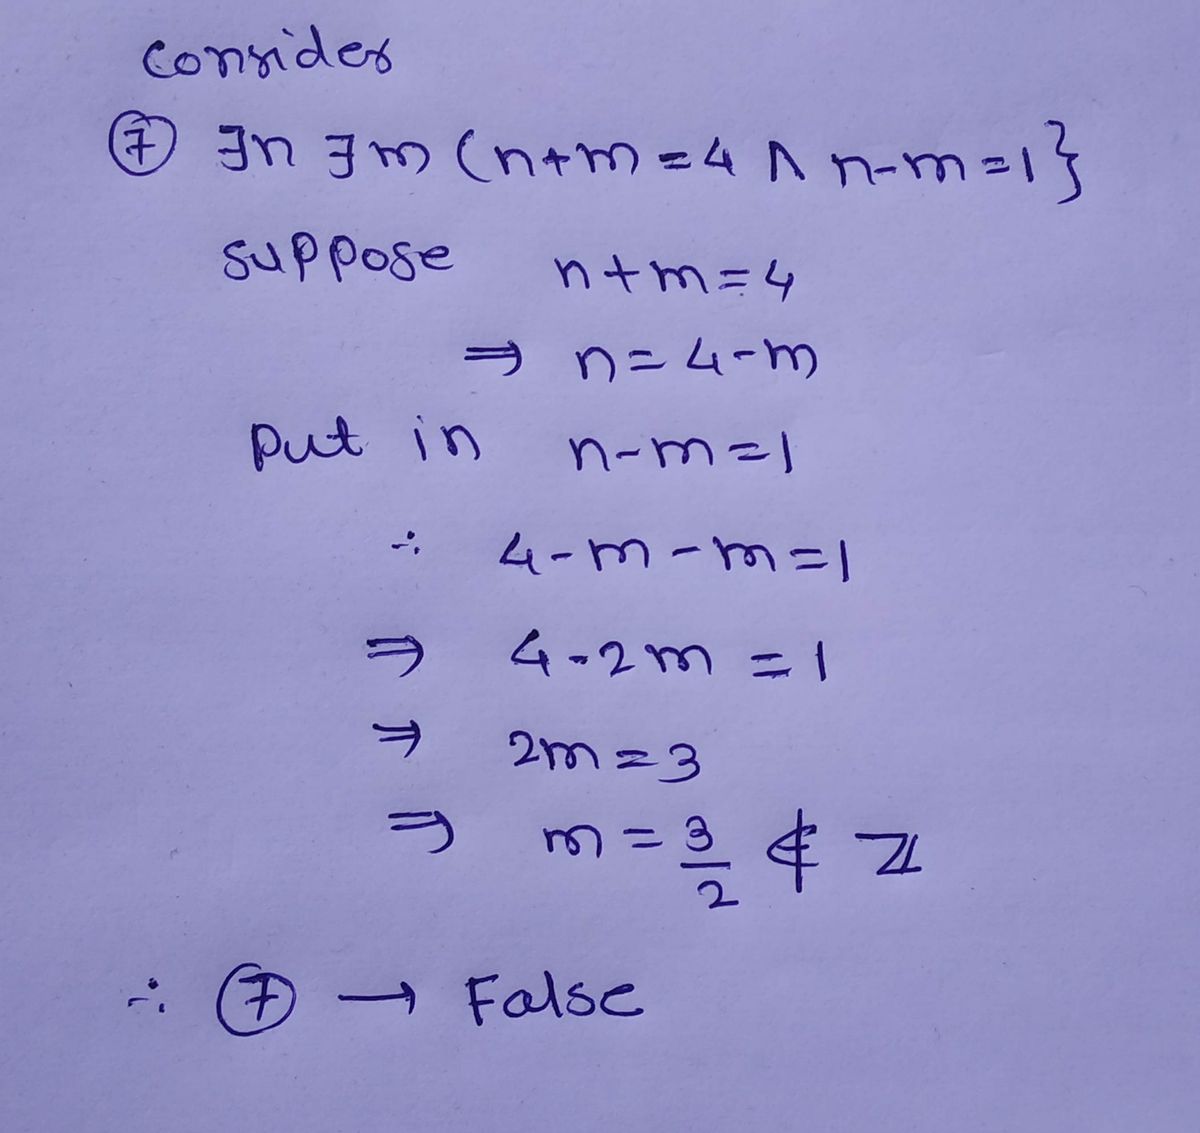 Consider
⑦ ∃n ∃m (n+m=4 ∧ n-m=1}
suppose n+m=4
⇒ n=4-m
Put in n-m=1
∴ 4-m-m=1
⇒ 4-2m=1
⇒ 2m=3
⇒ m=3/2 ∉ ℤ
∴ ⑦ → False